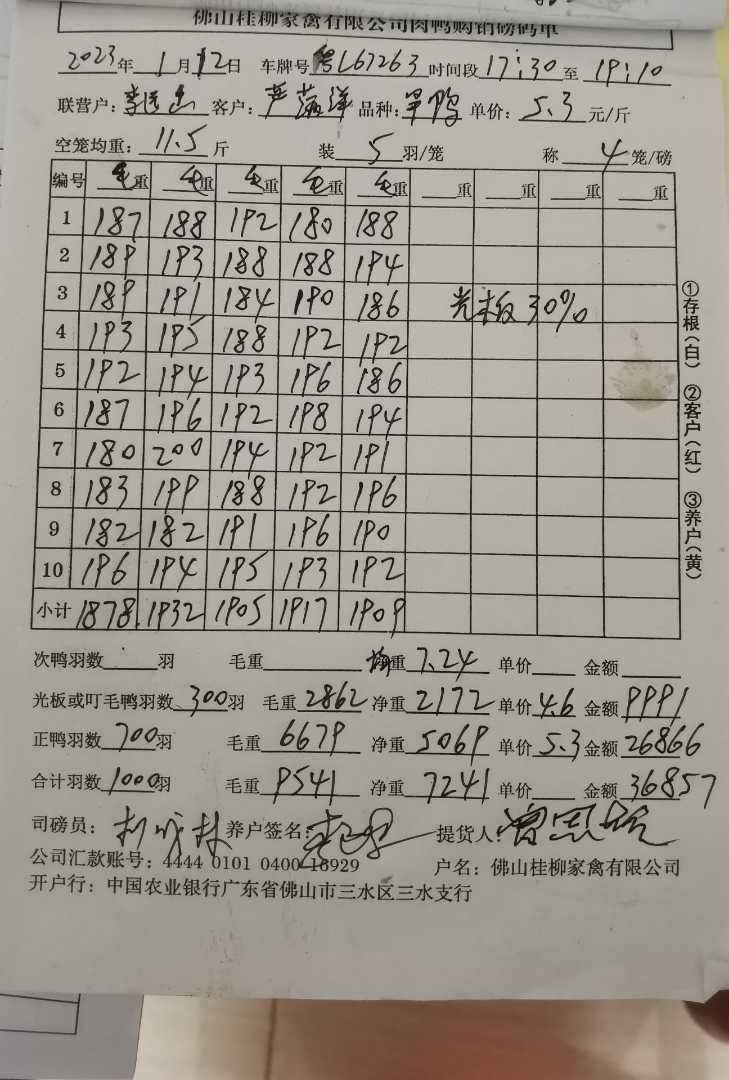 佛山桂柳家禽有限公司肉鸭购销磅码单
2023年 1月12日 车牌号 粤L67263 时间段 17:30 至 19:10
联营户: 客户: 严满洋 品种: 旱鸭 单价: 5.3 元/斤
空笼均重: 11.5 斤 装 5 羽/笼 称 4 笼/磅
编号 毛重 毛重 毛重 毛重 毛重 重 重 重 重
1 187 188 192 180 188
2 189 193 188 188 194
3 189 191 184 190 186 光板30%
4 193 195 188 192 192
5 192 194 193 196 186
6 187 196 192 198 194
7 180 200 194 192 191
8 183 199 188 192 196
9 182 182 191 196 190
10 196 194 195 193 192
小计 1878 1932 1905 1917 1909
次鸭羽数 羽 毛重 均重 7.24 单价 金额
光板或叮毛鸭羽数 300羽 毛重 2862 净重 2172 单价 4.6 金额 9991
正鸭羽数 700羽 毛重 6679 净重 5069 单价 5.3 金额 26866
合计羽数 1000羽 毛重 9541 净重 7241 单价 金额 36857
司磅员: 养户签名: 提货人:
公司汇款账号: 4444 0101 0400 16929 户名: 佛山桂柳家禽有限公司
开户行: 中国农业银行广东省佛山市三水区三水支行
①存根(白) ②客户(红) ③养户(黄)